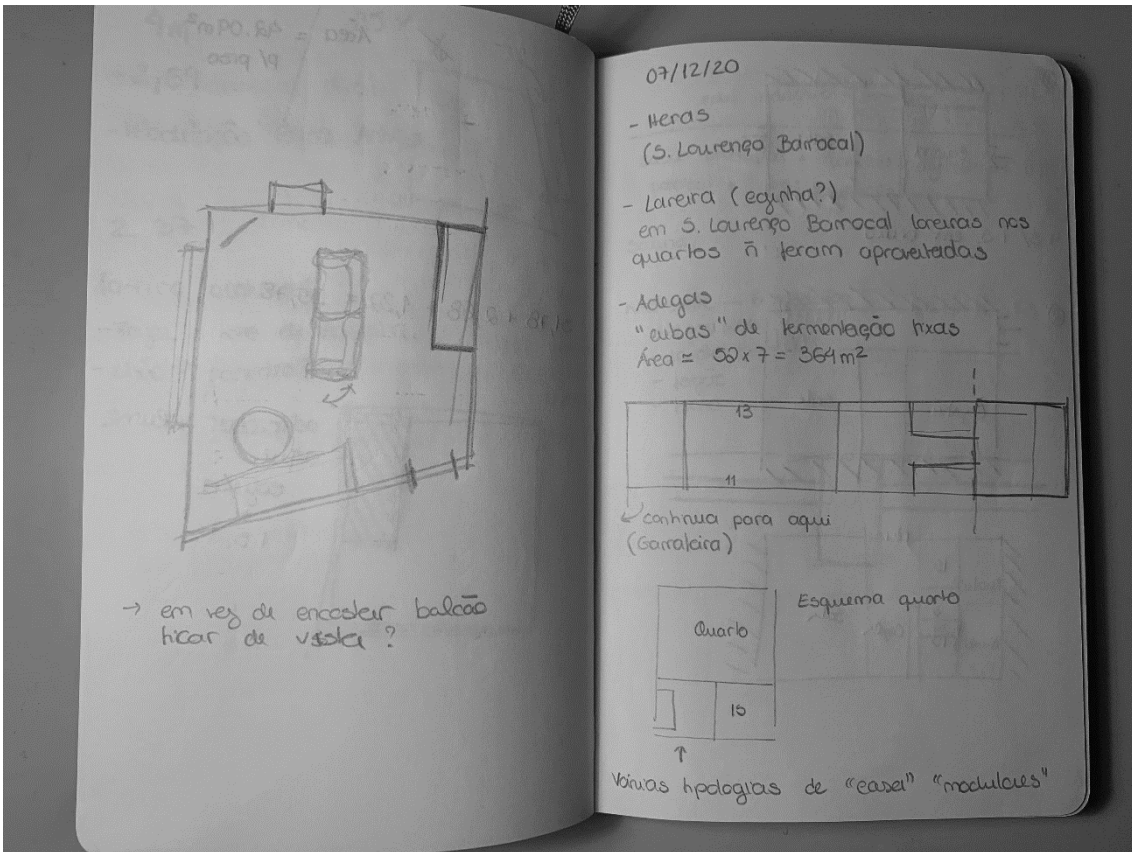 → em vez de encostar balcão
ficar de vista?
07/12/20
- Heras
(S. Lourenço Barrocal)
- Lareira (eginha?)
em S. Lourenço Barrocal lareiras nos
quartos ñ foram aproveitadas
- Adegas
"cubas" de fermentação fixas
Área ≃ 52 x 7 = 364 m²
13
11
continua para aqui
(Garrafeira)
Esquema quarto
Quarto
IS
Várias tipologias de "casa" "modulares"